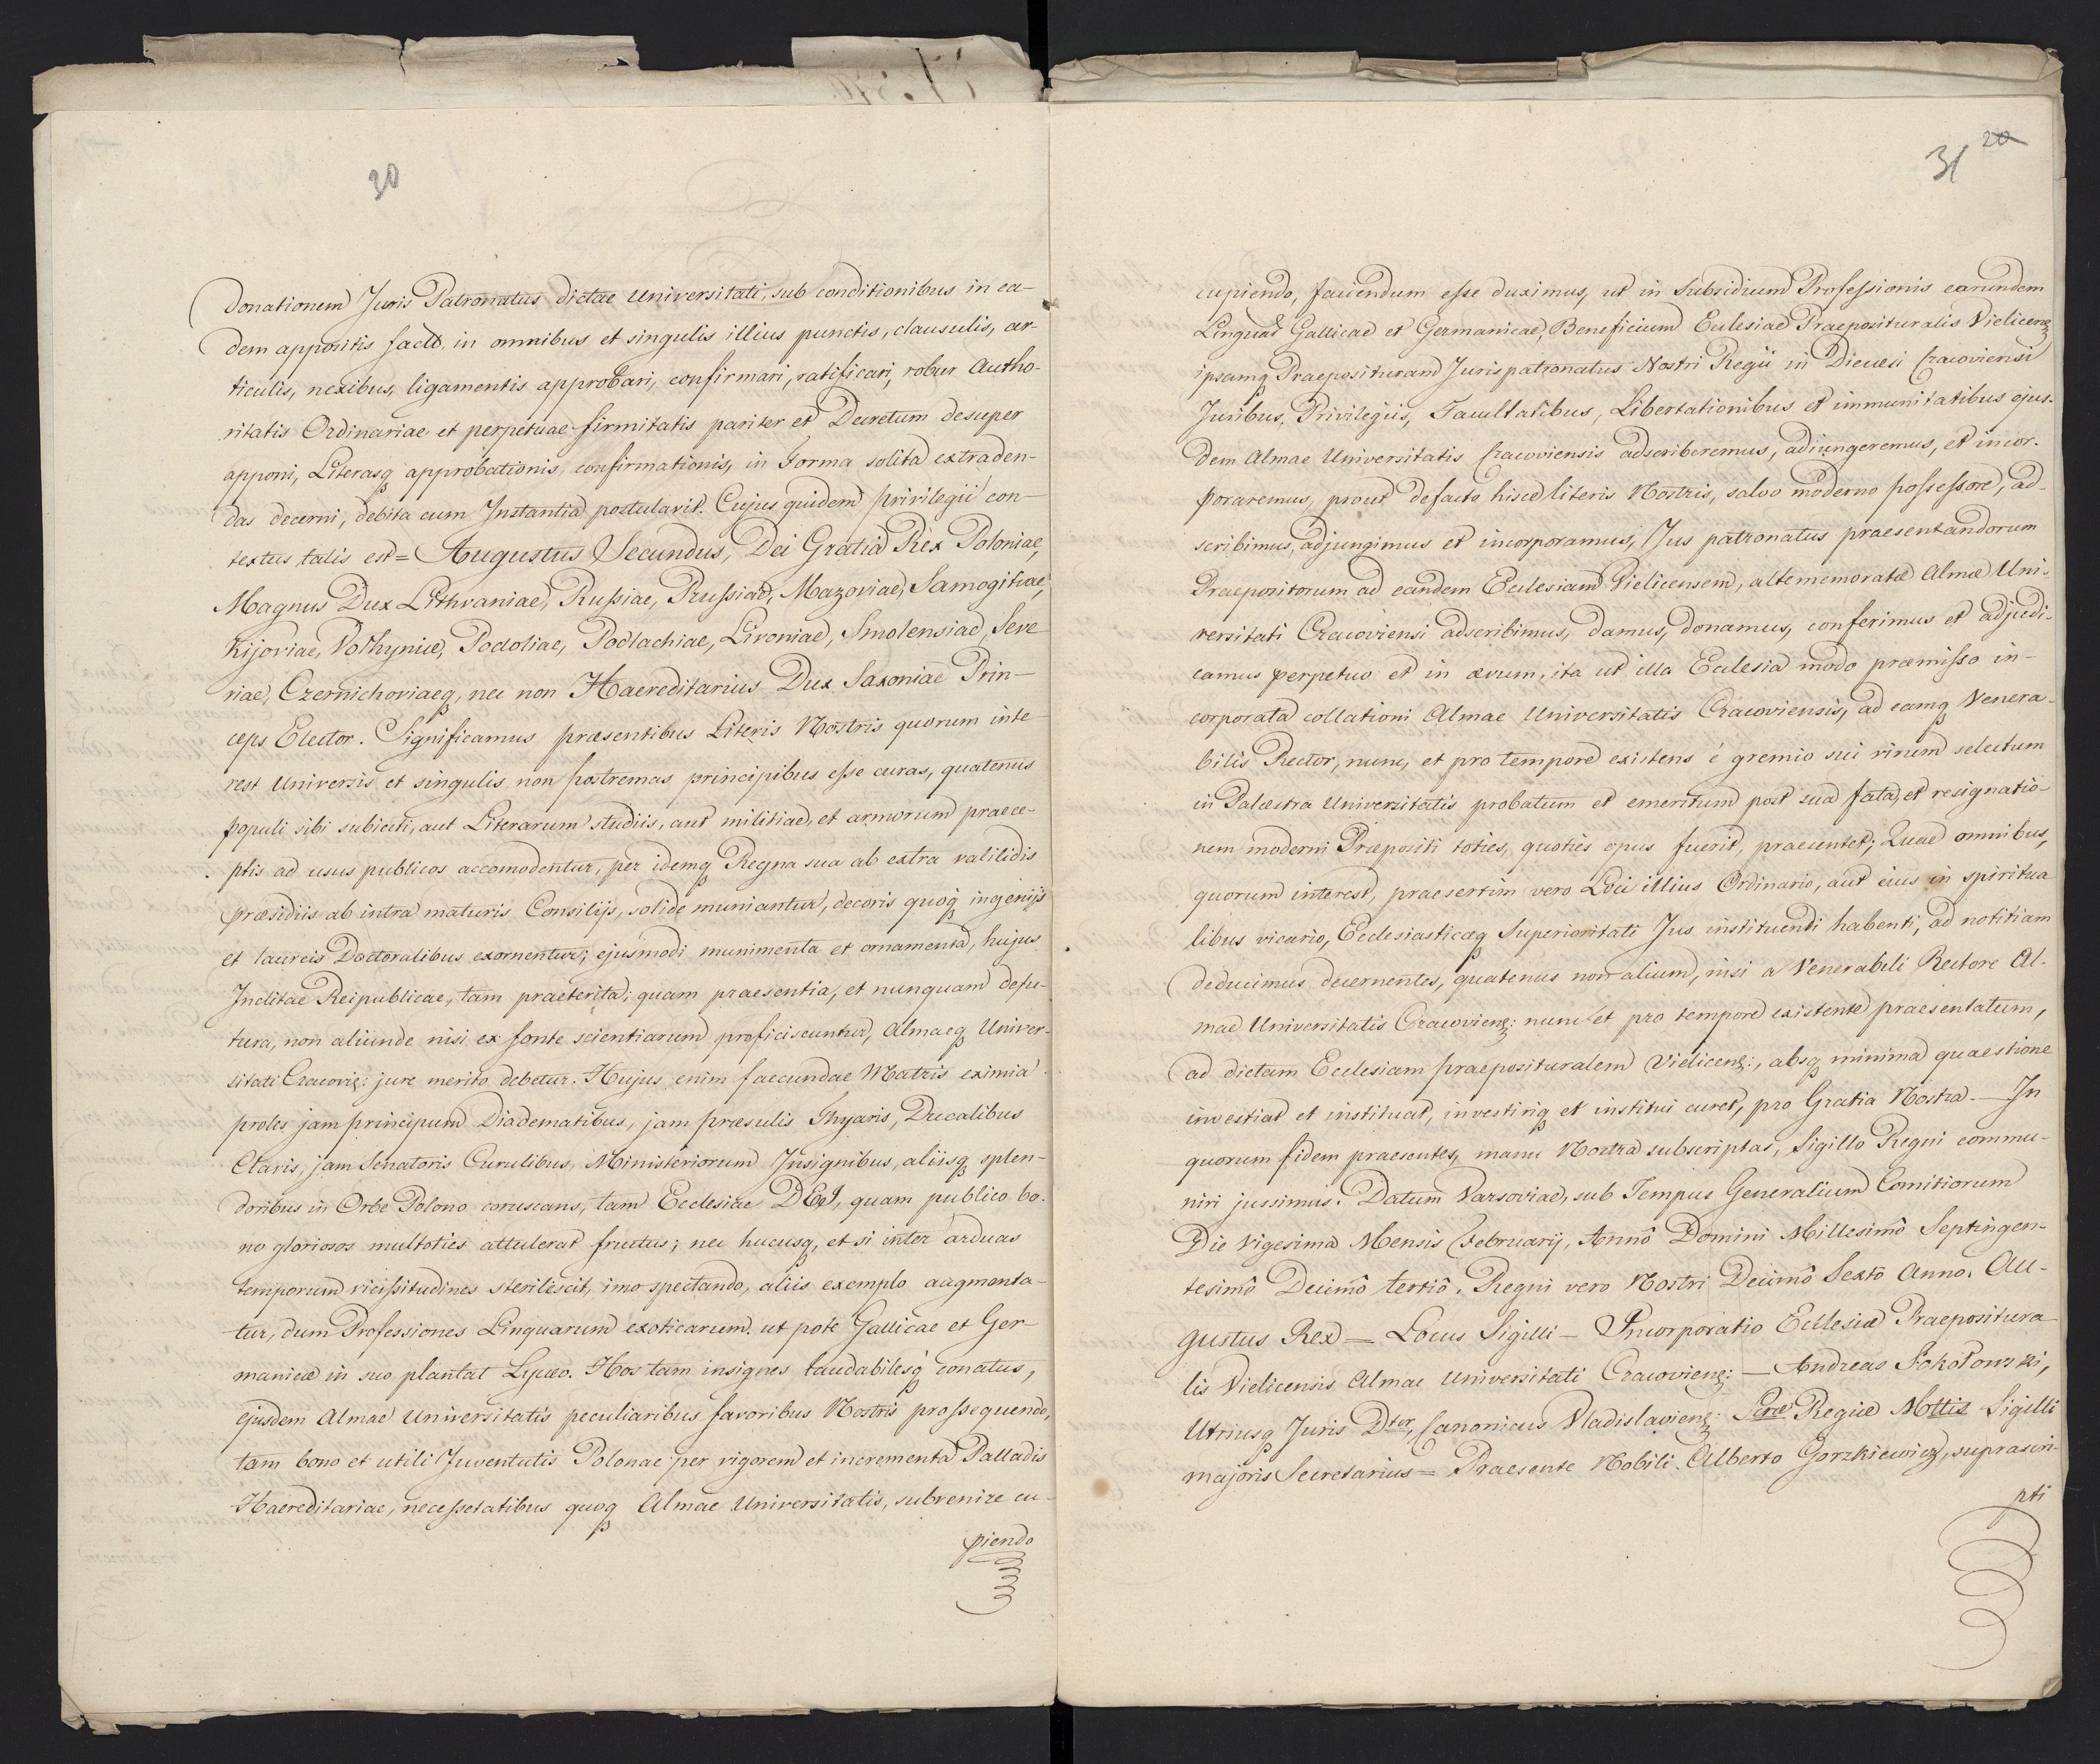 30
Donationem Juris Patronatus dictae Universitati, sub conditionibus in ea-
dem appositis facto, in omnibus et singulis illius punctis, clausulis, ar-
ticulis, nexibus, ligamentis approbari, confirmari, ratificari, robur Autho-
ritatis Ordinariae et perpetuae firmitatis pariter et Decretum desuper
apponi, Literasq approbationis, confirmationis, in Forma solita extraden-
das decerni, debita cum Instantia postulavit. Cujus quidem privilegii con-
textus talis est = Augustus Secundus, Dei Gratia Rex Poloniae,
Magnus Dux Lithvaniae, Russiae, Prussiae, Mazoviae, Samogitiae,
Kijoviae, Volhyniae, Podoliae, Podlachiae, Livoniae, Smolensiae, Seve
riae, Czernichoviaeq, nec non Haereditarius Dux Saxoniae Prin-
ceps Elector. Significamus praesentibus Literis Nostris quorum inte
rest Universis et singulis non postremas principibus esse curas, quatenus
populi sibi subiecti, aut Literarum studiis, aut militiae, et armorum praece-
ptis ad usus publicos accomodentur, per idemq Regna sua ab extra valilidis
praesidiis ab intra maturis Consilijs, solide muniantur, decoris quoq ingenijs
et laureis Doctoralibus exornentur; ejusmodi munimenta et ornamenta, hujus
Inclitae Reipublicae, tam praeterita, quam praesentia, et nunquam defu-
tura, non aliunde nisi ex fonte scientiarum proficiscuntur, Almaeq Univer-
sitati Cracovien: jure merito debetur. Hujus enim faecundae Matris eximia
proles jam principum Diadematibus, jam praesulis Thyaris, Ducalibus
Clavis, jam Senatoris Curulibus, Ministeriorum Insignibus, aliisq splen-
doribus in Orbe Polono coruscans, tam Ecclesiae DEI, quam publico bo-
no gloriosos multoties attulerat fructus; nec hucusq, et si inter arduas
temporum vicissitudines sterilescit, imo spectando, aliis exemplo augmenta-
tur, dum Professiones Linguarum exoticarum ut pote Gallicae et Ger-
manicae in suo plantat Lycaeo. Hos tam insignes laudabilesq conatus,
ejusdem Almae Universitatis peculiaribus favoribus Nostris prossequendo,
tam bono et utili Juventutis Polonae per vigorem et incrementa Palladis
Haereditariae, necessetatibus quoq Almae Universitatis, subvenire cu-
piendo
31 20
cupiendo, favendum esse duximus, ut in Subsidium Professionis earundem
Linguae Gallicae et Germanicae, Beneficium Eclesiae Praeposituralis Vielicen:
ipsamq Praeposituram Jurispatronatus Nostri Regii in Diecesi Cracoviensi
Juribus, Privilegiis, Facultatibus, Libertationibus et immunitatibus ejus-
dem Almae Universitatis Cracoviensis adscriberemus, adiungeremus, et incor-
poraremus, prout defacto hisce literis Nostris, salvo moderno possessore, ad-
scribimus, adjungimus et incorporamus, Jus patronatus praesentandorum
Praepositorum ad eandem Ecclesiam Vielicensem, altememoratae Almae Uni-
versitati Cracoviensi adscribimus, damus, donamus, conferimus et adjudi-
camus perpetuo et in aevum, ita ut illa Ecclesia modo praemisso in-
corporata collationi Almae Universitatis Cracoviensis, ad eamq Venera-
bilis Rector, nunc, et pro tempore existens é gremio sui virum selectum
in Palaestra Universitatis probatum et emeritum post sua fata, et resignatio-
nem moderni Praepositi toties, quoties opus fuerit, praesentet; Quae omnibus,
quorum interest, praesertim vero Loci illius Ordinario, aut eius in spiritua
libus vicario, Ecclesiasticaeq Superioritati Jus instituendi habenti, ad notitiam
deducimus decernentes, quatenus non alium, nisi a Venerabili Rectore Al-
mae Universitatis Cracovien: nunc et pro tempore existente praesentatum,
ad dictam Ecclesiam praeposituralem Vielicen:, absq minima quaestione
investiat et instituat, investiriq et institui curet, pro Gratia Nostra. — In
quorum fidem praesentes, manu Nostra subscriptas, Sigillo Regni commu-
niri jussimus. Datum Varsoviae, sub Tempus Generalium Comitiorum
Die Vigesima Mensis Februarij, Annô Domini Millesimô Septingen-
tesimô Decimô tertiô. Regni vero Nostri Decimô Sextô Anno. Au-
gustus Rex = Locus Sigilli — Incorporatio Ecclesiae Praepositura
lis Vielicensis Almae Universitati Cracovien: — Andreas Sokołowski,
Utriusq Juris Dtor, Canonicus Vladislavien: Scrae Regiae Mttis Sigilli
majoris Secretarius = Praesente Nobili Alberto Gorzkiewicz, suprascri-
pti